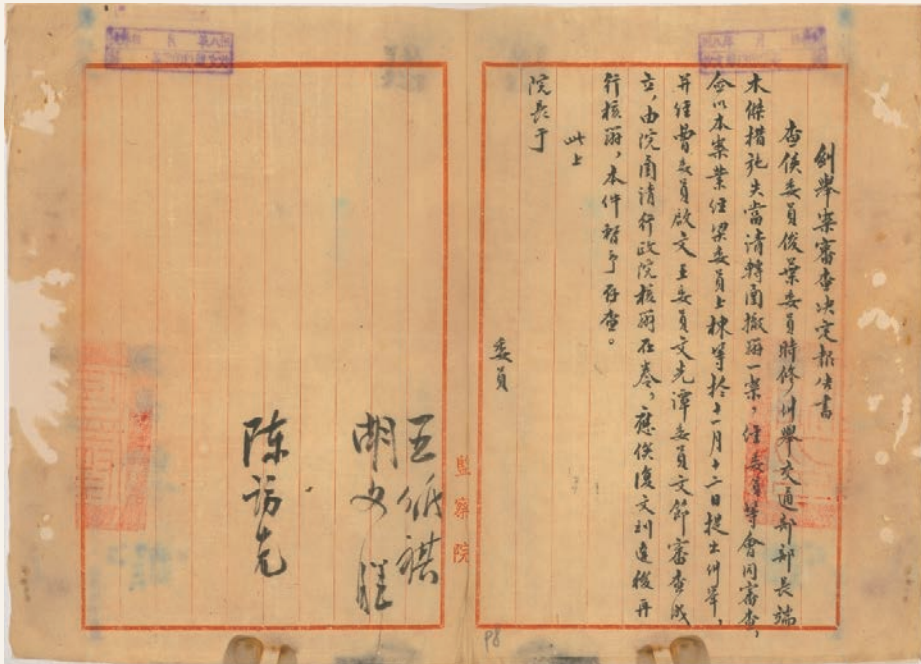 糾舉案審查決定報告書
查侯委員俊葉委員時修糾舉交通部部長端
木傑措施失當請轉函撤職一案，經委員等會同審查，
僉以本案業經梁委員上棟等於十一月十二日提出糾舉，
并經曹委員啟文王委員文光譚委員文節審查成
立，由院函請行政院核辦在卷，應俟復文到達後再
行核辦，本件暫予存查。
此上
院長于
委員
王
胡文
陳訪先
監察院
P8